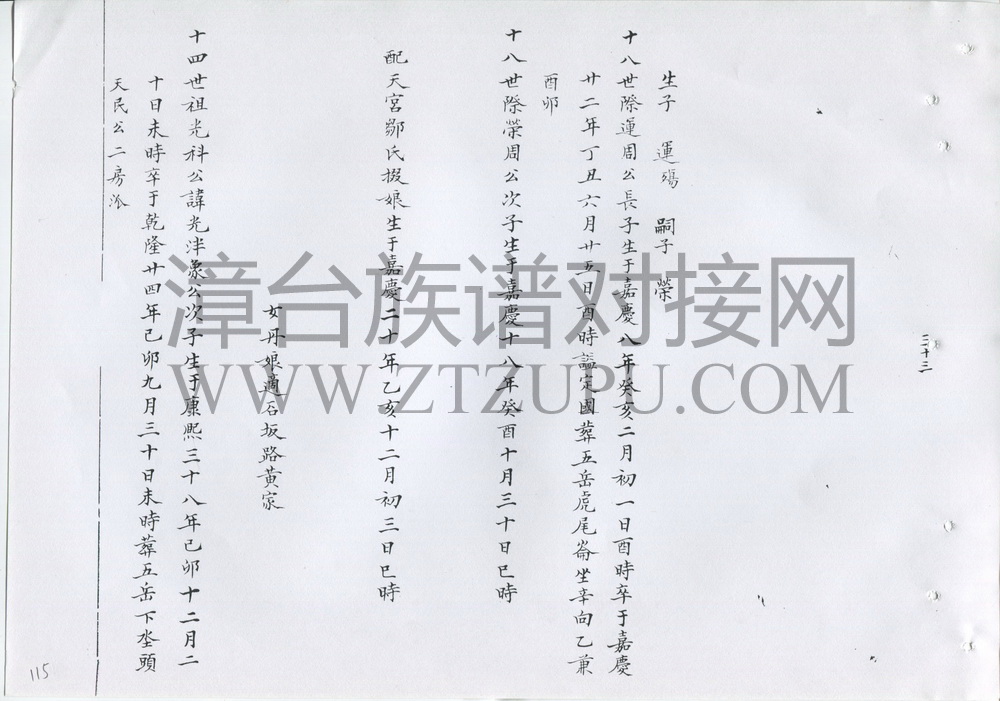 三十三
生子 運殤 嗣子 榮
十八世際運周公長子生于嘉慶八年癸亥二月初一日酉時卒于嘉慶
廿二年丁丑六月廿五日酉時謚定國葬五岳虎尾崙坐辛向乙兼
酉卯
十八世際榮周公次子生于嘉慶十八年癸酉十月三十日巳時
配天宮鄒氏掇娘生于嘉慶二十年乙亥十二月初三日巳時
女丹娘適石坂路黃家
十四世祖光科公諱光泮彖公次子生于康熙三十八年己卯十二月二
十日未時卒于乾隆廿四年己卯九月三十日未時葬五岳下坐頭
天民公二房派
115
漳台族谱对接网
WWW.ZTZUPU.COM